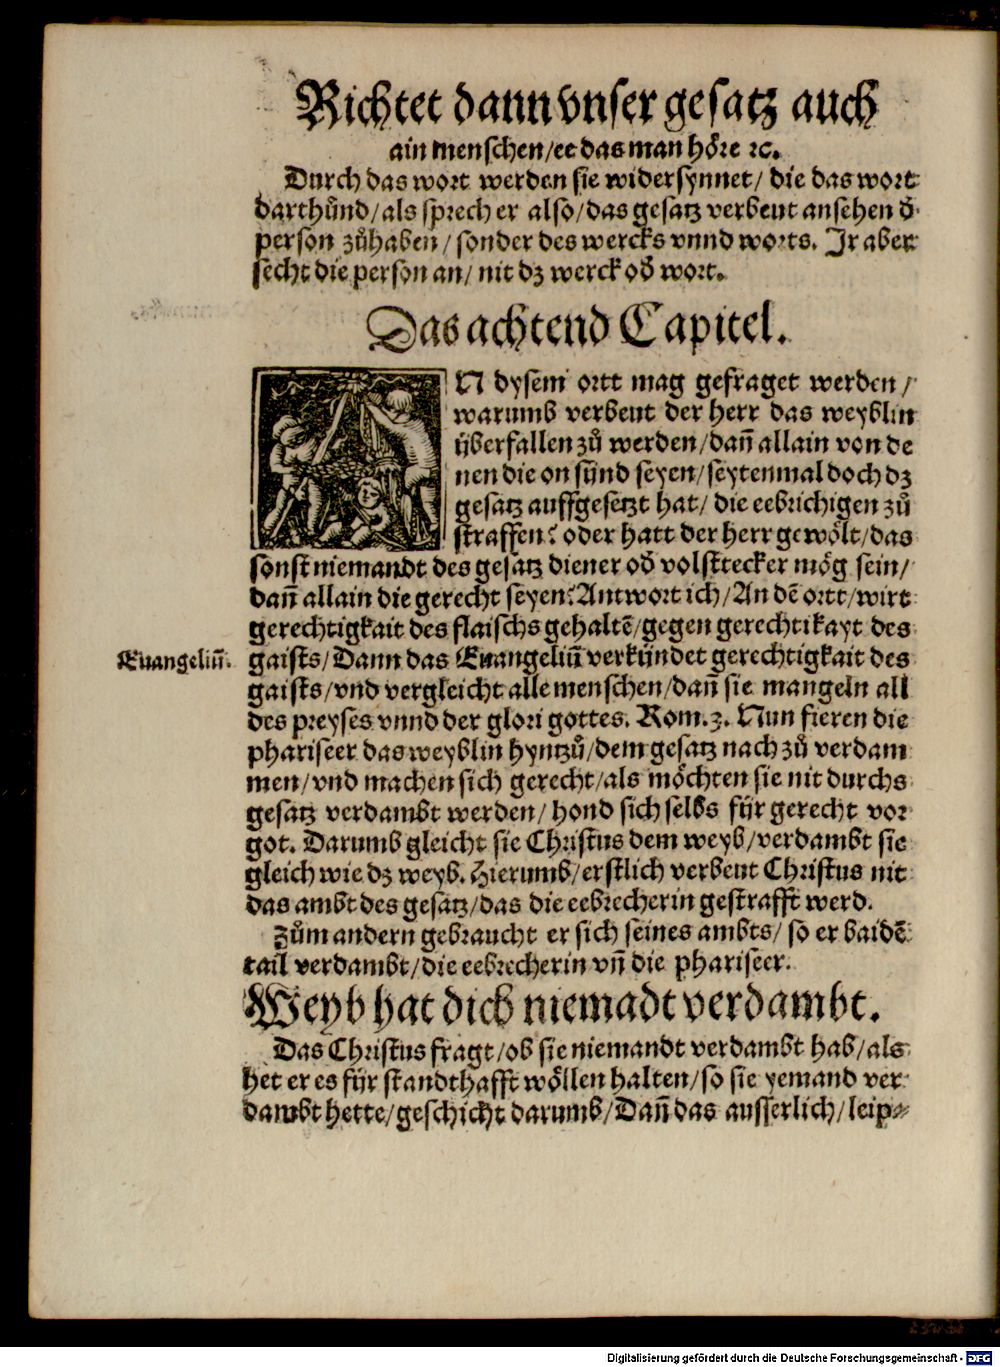 Richtet dann vnser gesatz auch
ain menschen/ee das man höre ⁊c.
Durch das wort werden sie widersynnet/ die das wort
darthůnd/als sprech er also/das gesatz verbeut ansehen d̕
person zůhaben/ sonder des wercks vnnd worts. Ir aber
secht die person an/ nit dz werck od̕ wort.
Das achtend Capitel.
N dysem ortt mag gefraget werden/
warumb verbeut der herr das weyblin
überfallen zů werden/dañ allain von de
nen die on sünd seyen/seytenmal doch dz
gesatz auffgesetzt hat/ die eebrichigen zů
straffen? oder hatt der herr gewölt/das
sonst niemandt des gesatz diener od̕ volstrecker mög sein/
dañ allain die gerecht seyen? Antwort ich/An dē ortt/wirt
gerechtigkait des flaischs gehaltē/gegen gerechtikayt des
Euangeliū.
gaists/Dann das Euangeliū verkündet gerechtigkait des
gaists/vnd vergleicht alle menschen/dañ sie mangeln all
des preyses vnnd der glori gottes. Rom.3. Nun fieren die
phariseer das weyblin hyntzů/dem gesatz nach zů verdam
men/vnd machen sich gerecht/als möchten sie nit durchs
gesatz verdambt werden/ hond sich selbs für gerecht vor
got. Darumb gleicht sie Christus dem weyb/verdambt sie
gleich wie dz weyb. Hierumb/erstlich verbeut Christus nit
das ambt des gesatz/das die eebrecherin gestrafft werd.
Zům andern gebraucht er sich seines ambts/ so er baidē
tail verdambt/die eebrecherin vñ die phariseer.
Weyb hat dich niemadt verdambt.
Das Christus fragt/ob sie niemandt verdambt hab/als
het er es für standthafft wöllen halten/so sie yemand ver
dambt hette/geschicht darumb/Dañ das ausserlich/leip⸗
Digitalisierung gefördert durch die Deutsche Forschungsgemeinschaft - DFG